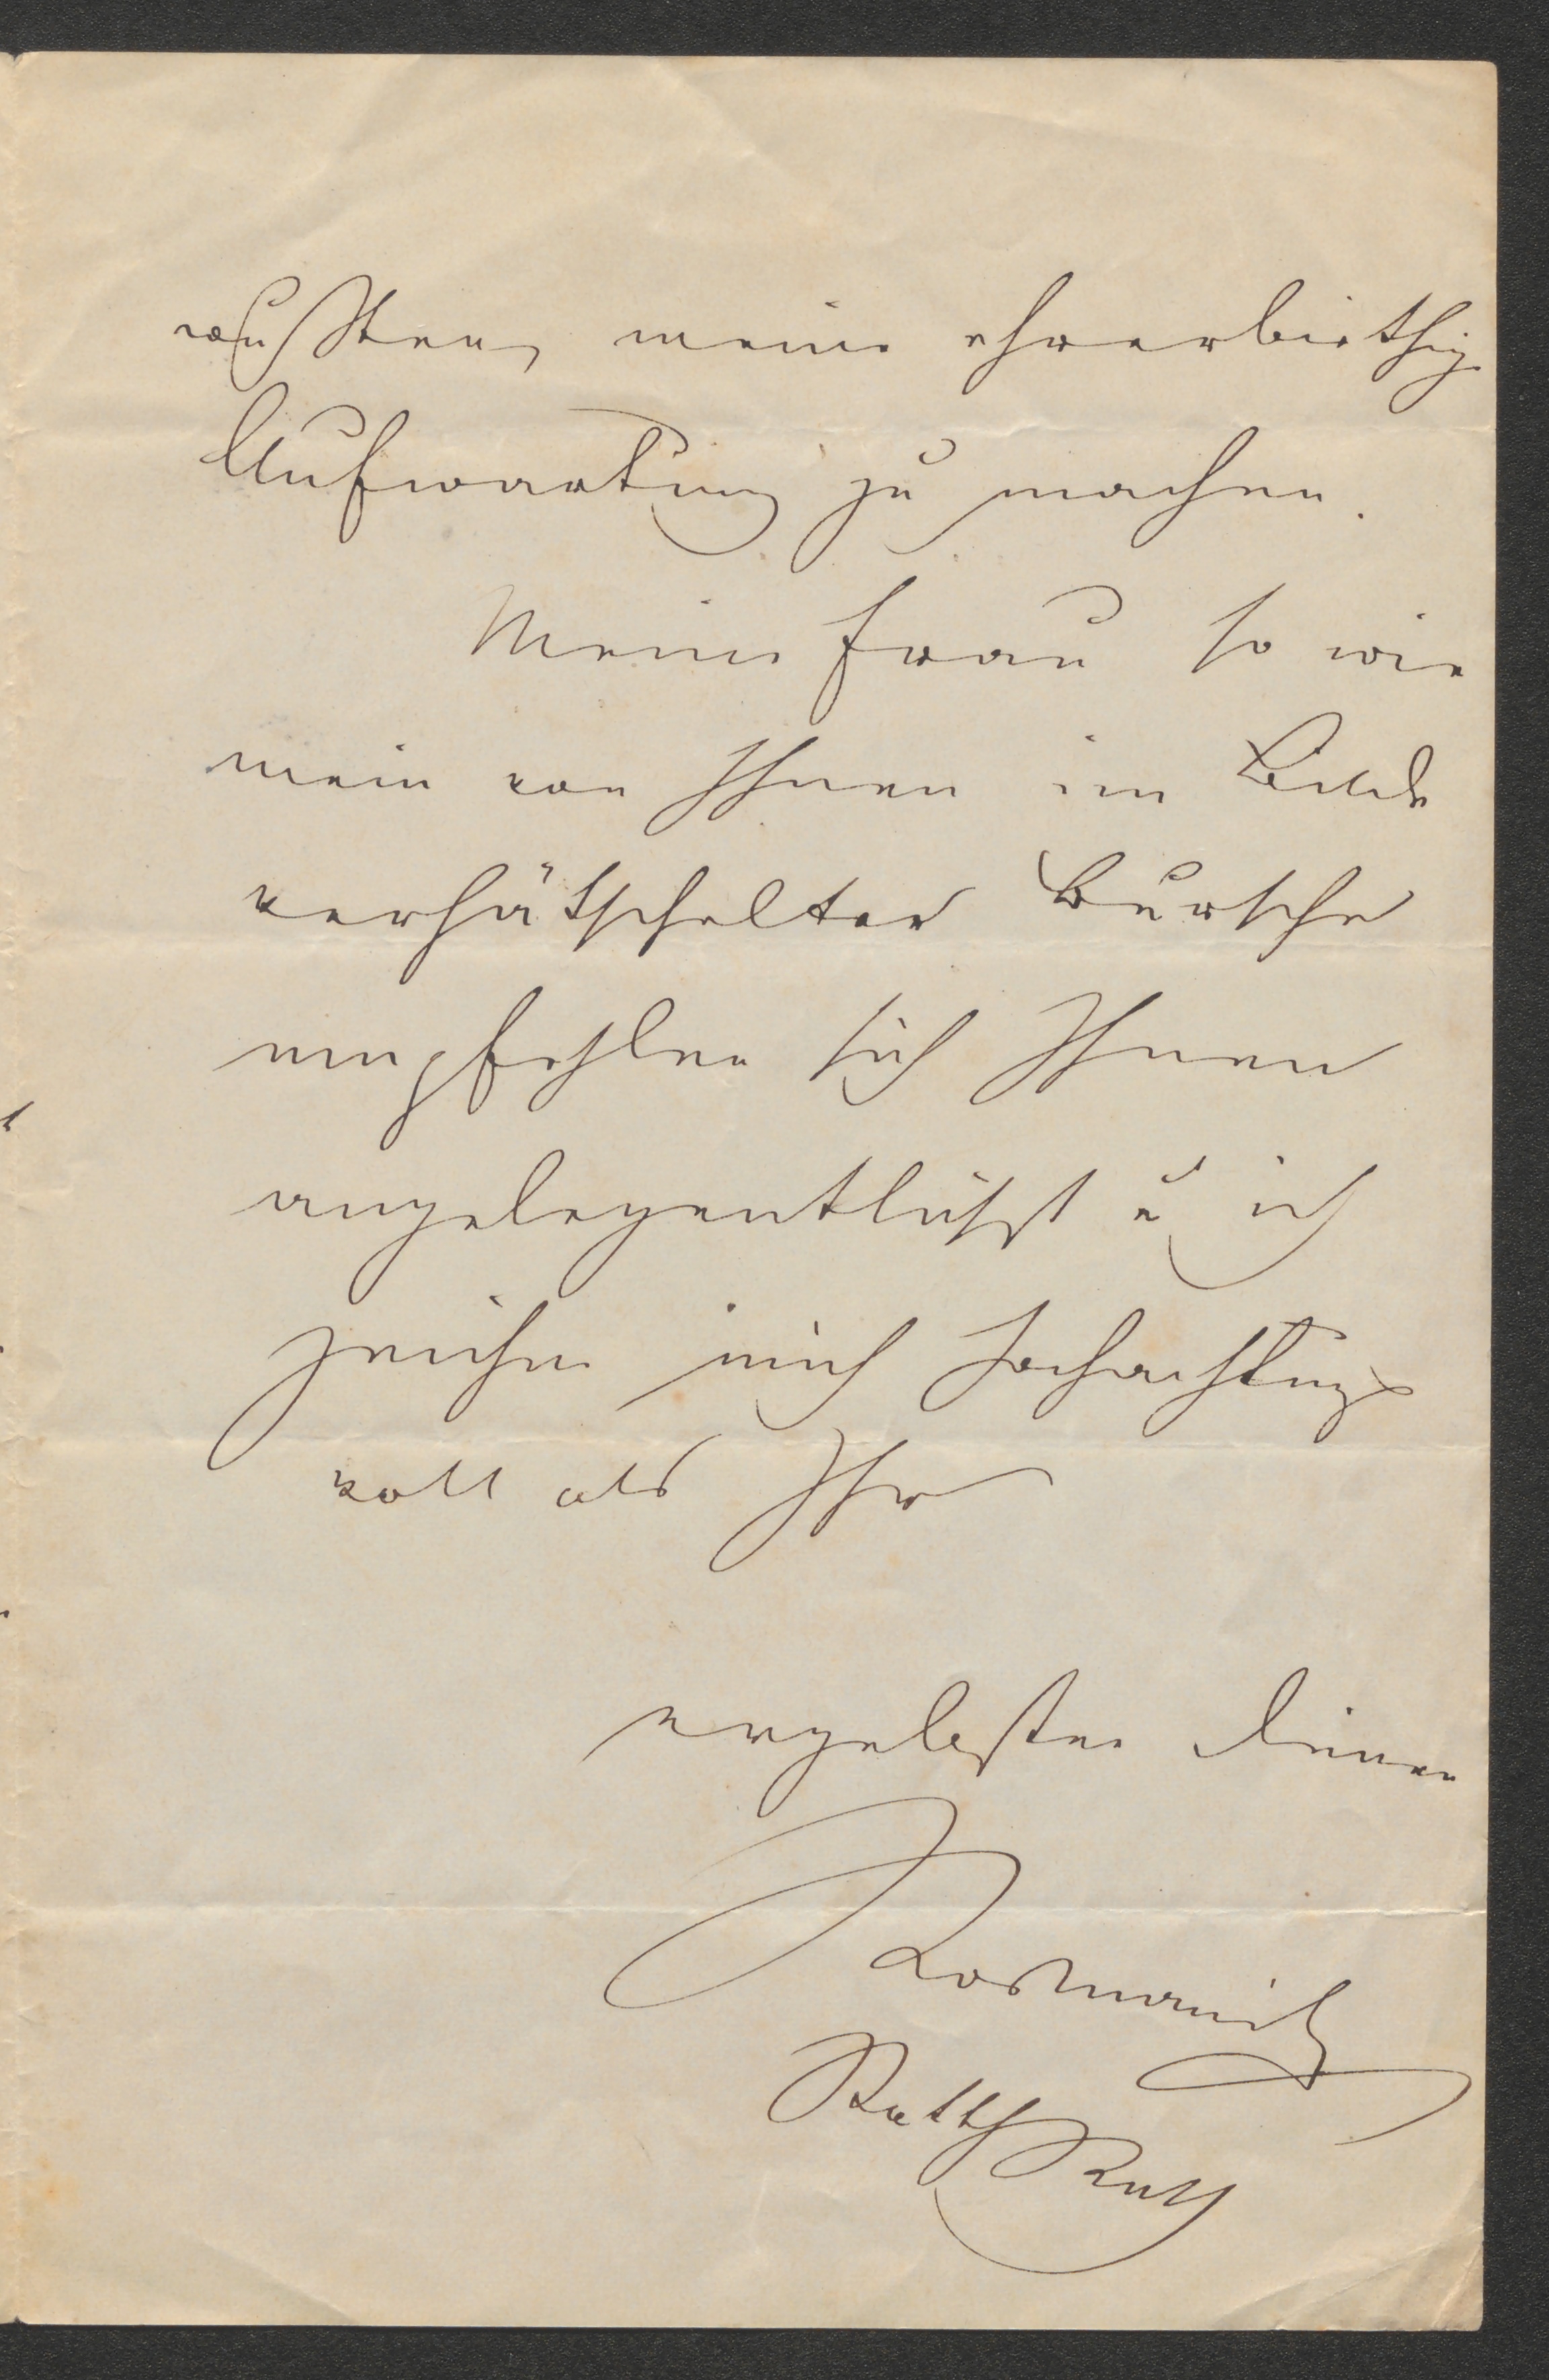 wußten, meine ehrerbiethig
Aufwartung zu machen.
Meine Frau so wie
mein von Ihnen im Bilde
verhätschelter Bursche
empfehlen sich Ihnen
angelegentlichst u ich
zeichne mich hochachtungs
voll als Ihr
ergebenster Diener
Kosmanith